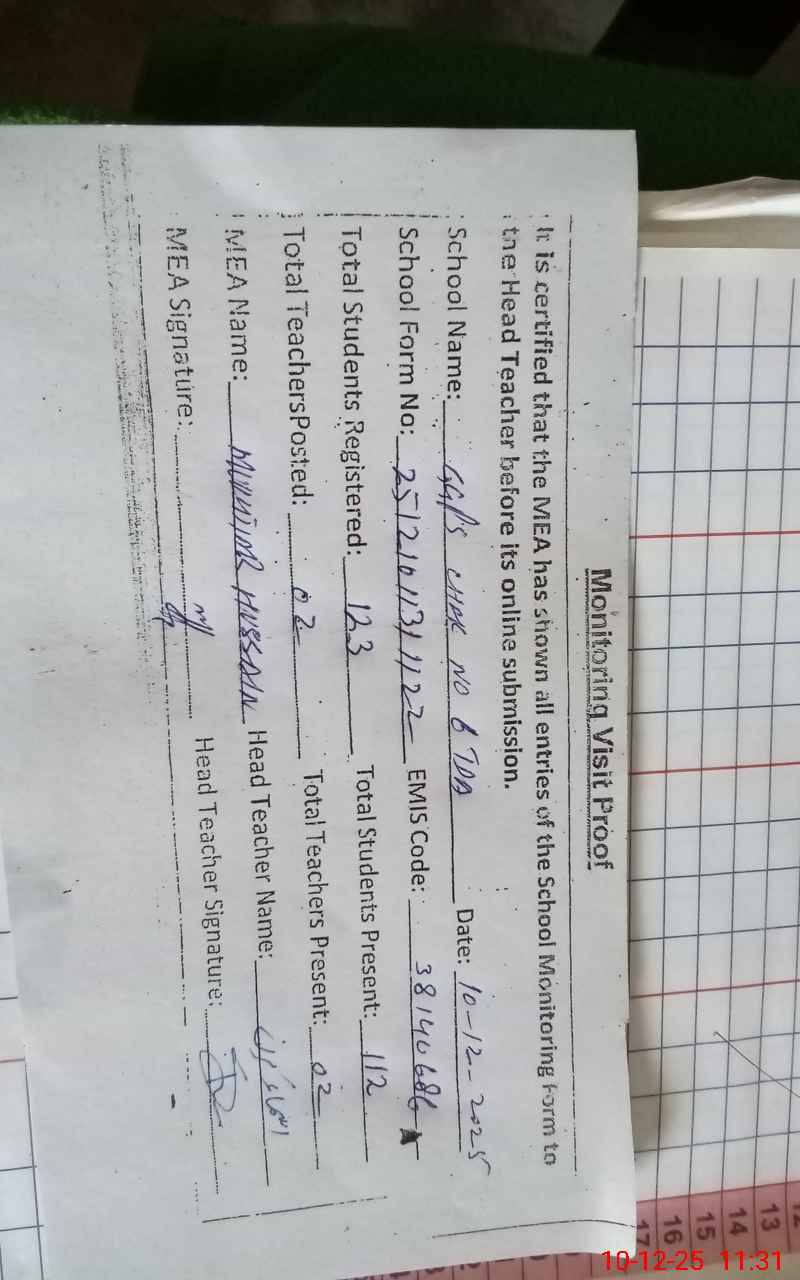 Monitoring Visit Proof
It is certified that the MEA has shown all entries of the School Monitoring Form to
the Head Teacher before its online submission.
School Name: GGPS CHAK NO 6 TDA Date: 10-12-2025
School Form No: 25121011311122 EMIS Code: 38140686
Total Students Registered: 123 Total Students Present: 112
Total TeachersPosted: 02 Total Teachers Present: 02
MEA Name: MUNTIAR HUSSAIN Head Teacher Name:
MEA Signature: Head Teacher Signature:
12
13
14
15
16
17
10-12-25 11:31